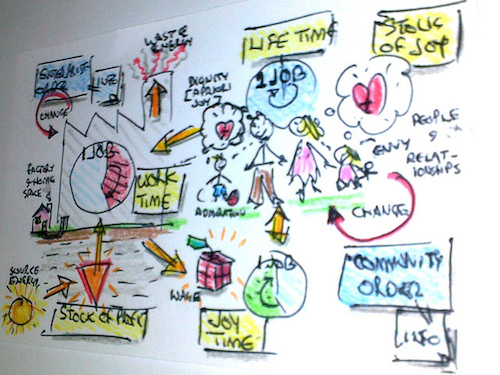 WASTE
ENERGY
LIFE TIME
STOCK
OF JOY
ORDER
INFO
1 JOB
DIGNITY
JOY
CHANGE
PEOPLE
&
RELAT-
IONSHIPS
ENVY
1 JOB
FACTORY
& HOME
SPACE
WORK
TIME
ADMIRATION
CHANGE
SOURCE
ENERGY
WAGE
1 JOB
COMMUNITY
ORDER
STOCK OF PROFIT
JOY
TIME
INFO